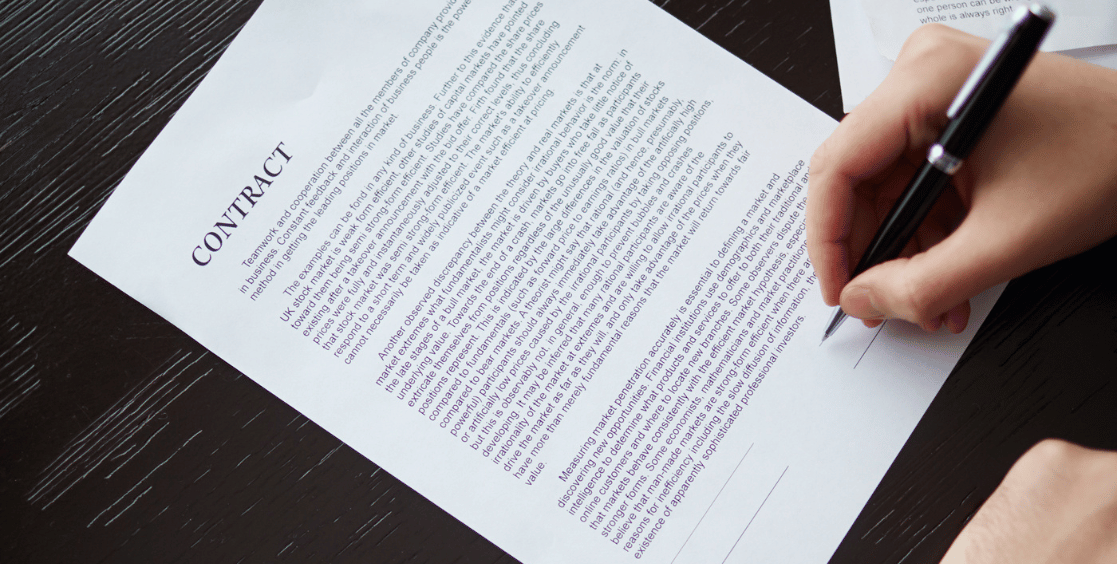 CONTRACT
Teamwork and cooperation between all the members of company provid
in business. Constant feedback and interaction of business people is the powe
method in getting the leading positions in market.
The examples can be found in any kind of business. Further to this evidence tha
UK stock market is weak form efficient, other studies of capital markets have pointed
toward them being semi strong-form efficient. Studies have compared the share prices
existing after a takeover announcement with the bid offer. Firth found that the share
prices were fully and instantaneously adjusted to their correct levels, thus concluding
that stock market was semi strong-form efficient. The market's ability to efficiently
respond to a short term and widely publicized event such as a takeover announcement
cannot necessarily be taken as indicative of a market efficient at pricing
Another observed discrepancy between the theory and real markets is that at
market extremes what fundamentalists might consider irrational behavior is the norm: in
the late stages of a bull market, the market is driven by buyers who take little notice of
underlying value. Towards the end of a crash, markets go into free fall as participants
extricate themselves from positions regardless of the unusually good value that their
positions represent. This is indicated by the large differences in the valuation of stocks
compared to fundamentals (such as forward price to earnings ratios) in bull markets
compared to bear markets. A theorist might say that rational (and hence, presumably,
powerful) participants should always immediately take advantage of the artificially high
or artificially low prices caused by the irrational participants by taking opposing positions,
but this is observably not, in general, enough to prevent bubbles and crashes
developing. It may be inferred that many rational participants are aware of the
irrationality of the market at extremes and are willing to allow irrational participants to
drive the market as far as they will, and only take advantage of the prices when they
have more than merely fundamental reasons that the market will return towards fair
value.
Measuring market penetration accurately is essential to defining a market and
discovering new opportunities. Financial institutions use demographics and marketplace
intelligence to determine what products and services to offer to both their traditional and
online customers and where to locate new branches. Some observers dispute the
that markets behave consistently with the efficient market hypothesis, especi
stronger forms. Some economists, mathematicians and market practition
believe that man-made markets are strong-form efficient when there ar
reasons for inefficiency including the slow diffusion of information, th
existence of apparently sophisticated professional investors.
one person can be w
whole is always right